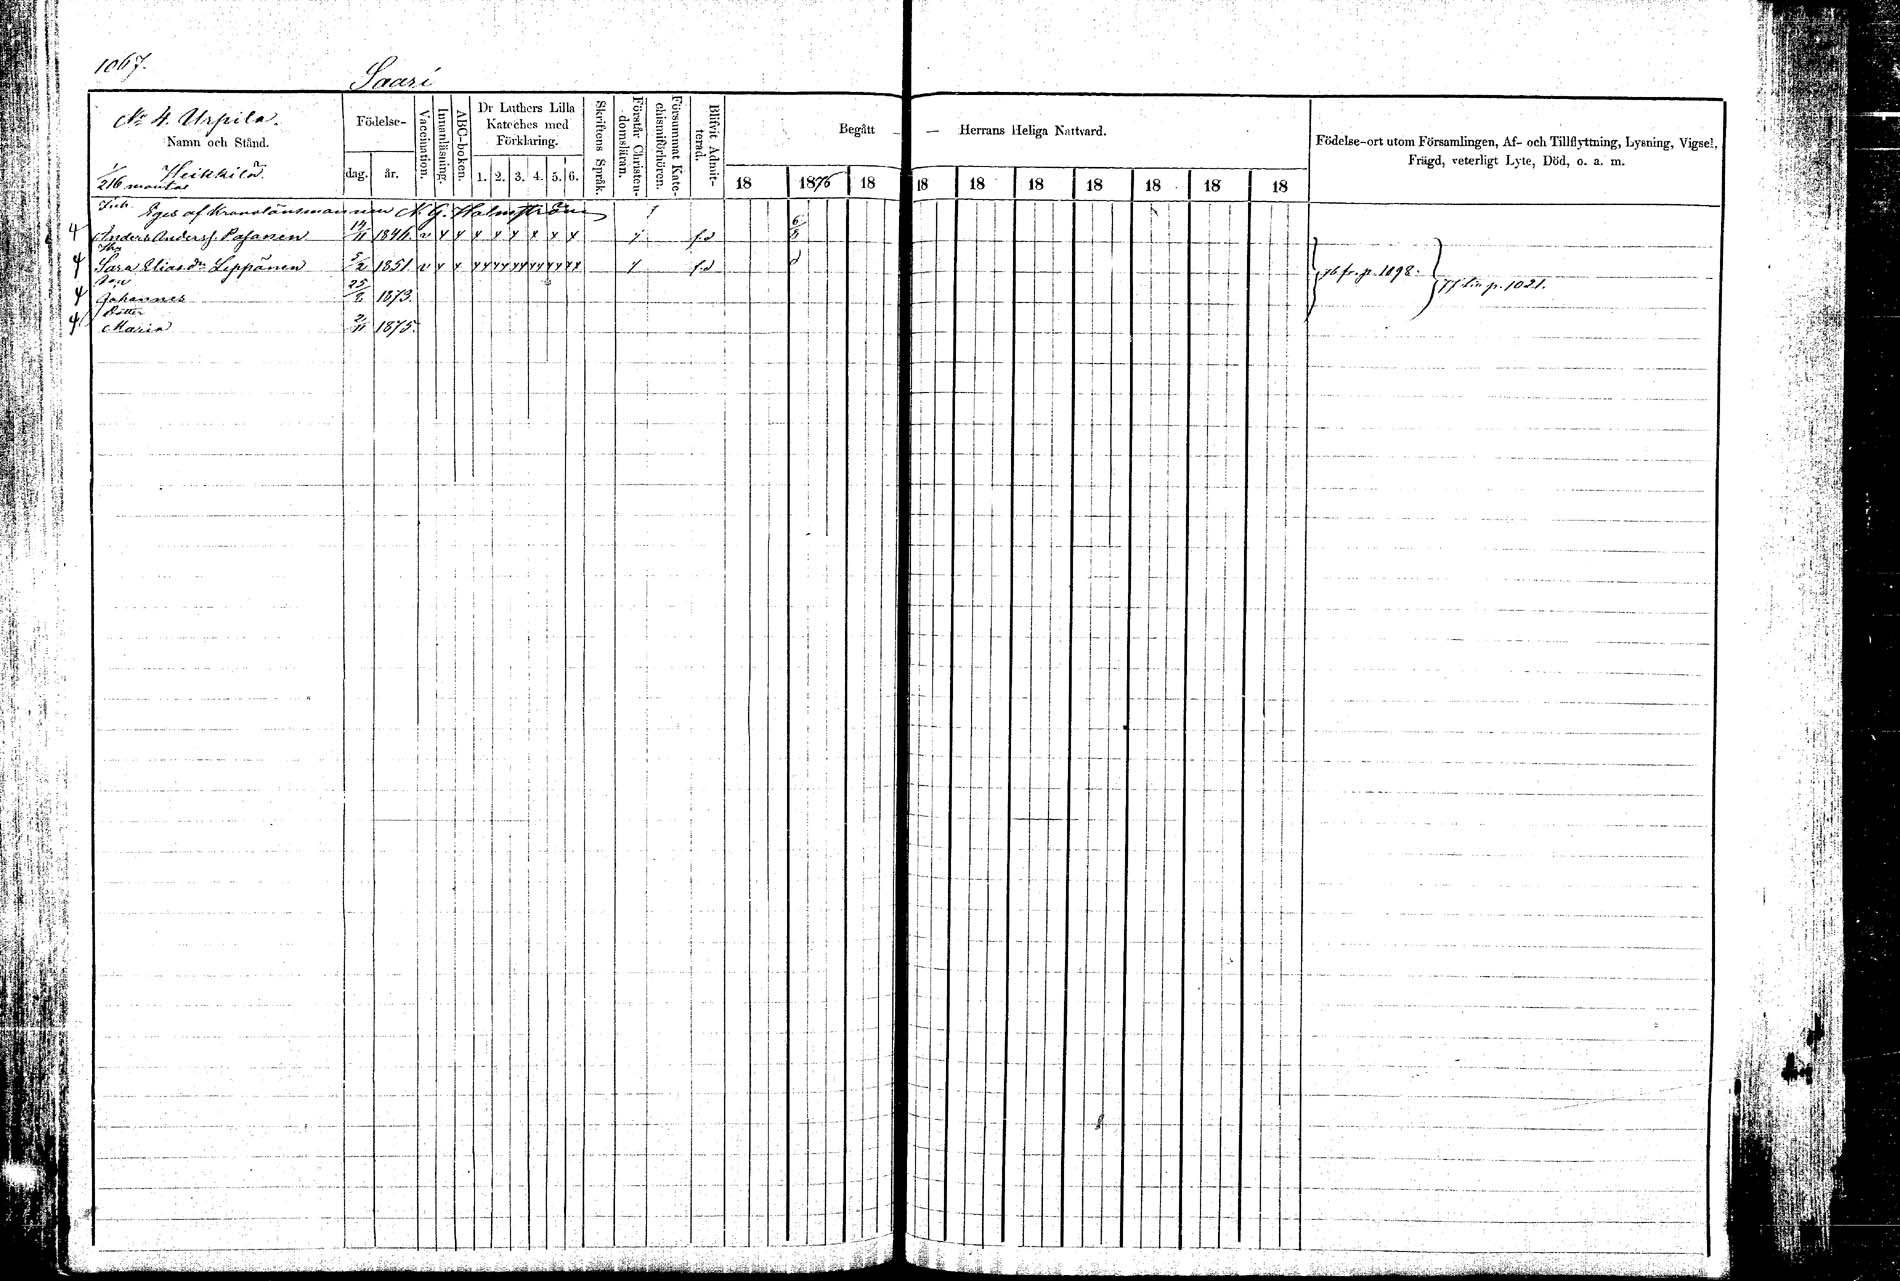 1067.
Saari
No 4. Urpila.
Namn och Stånd.
Heikkilä
1/216 mantal
Födelse-
dag.
år.
Vaccination.
Innanläsning.
ABC-boken.
Dr Luthers Lilla
Kateches med
Förklaring.
1. 2. 3. 4. 5. 6.
Skriftens Språk.
Förstår Christen-
domsläran.
Försummat Kate-
chismiförhören.
Blifvit Admit-
terad.
Begått — — Herrans Heliga Nattvard.
18 1876 18 18 18 18 18 18 18 18
Födelse-ort utom Församlingen, Af- och Tillflyttning, Lysning, Vigsel,
Frägd, veterligt Lyte, Död, o. a. m.
Eges af Kronolänsmannen N. G. Holmström
Anders Anderss. Pasanen 1846. v x x x x x x x x
Sara Eliasdr Leppänen 5/2 1851 v
76 fr. p. 1098. 77 till p. 1021.
Son
Johannes 25/8 1873.
Dotter
Maria 2/11 1875.